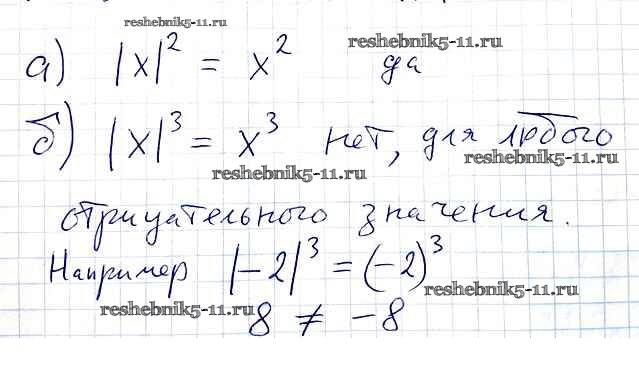 reshebnik5-11.ru
а) |x|² = x² да reshebnik5-11.ru
б) |x|³ = x³ нет, для любого
reshebnik5-11.ru reshebnik5-11.ru
отрицательного значения.
Например |-2|³ = (-2)³
reshebnik5-11.ru
reshebnik5-11.ru 8 ≠ -8